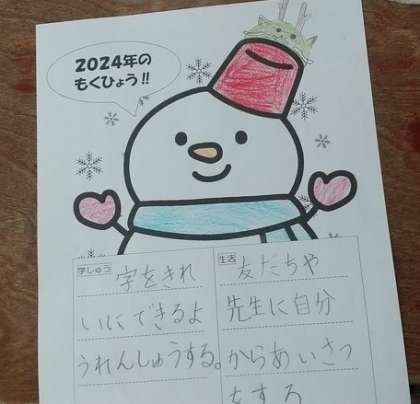 2024年の
もくひょう!!
学しゅう
字をきれ
いにできるよ
うれんしゅうする。
生活
友だちや
先生に自分
からあいさつ
をする